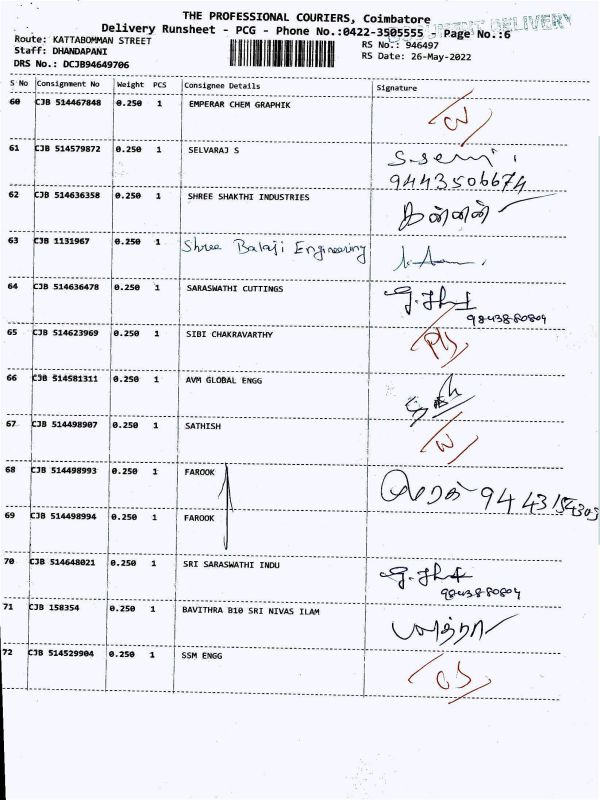 THE PROFESSIONAL COURIERS, Coimbatore
DOCUMENT DELIVERY
Delivery Runsheet - PCG - Phone No.:0422-3505555 Page No.:6
Route: KATTABOMMAN STREET RS No.: 946497
Staff: DHANDAPANI RS Date: 26-May-2022
DRS No.: DCJB94649706
S No Consignment No Weight PCS Consignee Details Signature
60 CJB 514467848 0.250 1 EMPERAR CHEM GRAPHIK
61 CJB 514579872 0.250 1 SELVARAJ S
9443506674
62 CJB 514636358 0.250 1 SHREE SHAKTHI INDUSTRIES கண்ணன்
63 CJB 1131967 0.250 1 Shree Balaji Engineering
64 CJB 514636478 0.250 1 SARASWATHI CUTTINGS
9843880804
65 CJB 514623969 0.250 1 SIBI CHAKRAVARTHY
66 CJB 514581311 0.250 1 AVM GLOBAL ENGG
67 CJB 514498907 0.250 1 SATHISH
68 CJB 514498993 0.250 1 FAROOK
69 CJB 514498994 0.250 1 FAROOK
70 CJB 514648021 0.250 1 SRI SARASWATHI INDU
9843880804
71 CJB 158354 0.250 1 BAVITHRA B10 SRI NIVAS ILAM பவித்ரா
72 CJB 514529904 0.250 1 SSM ENGG